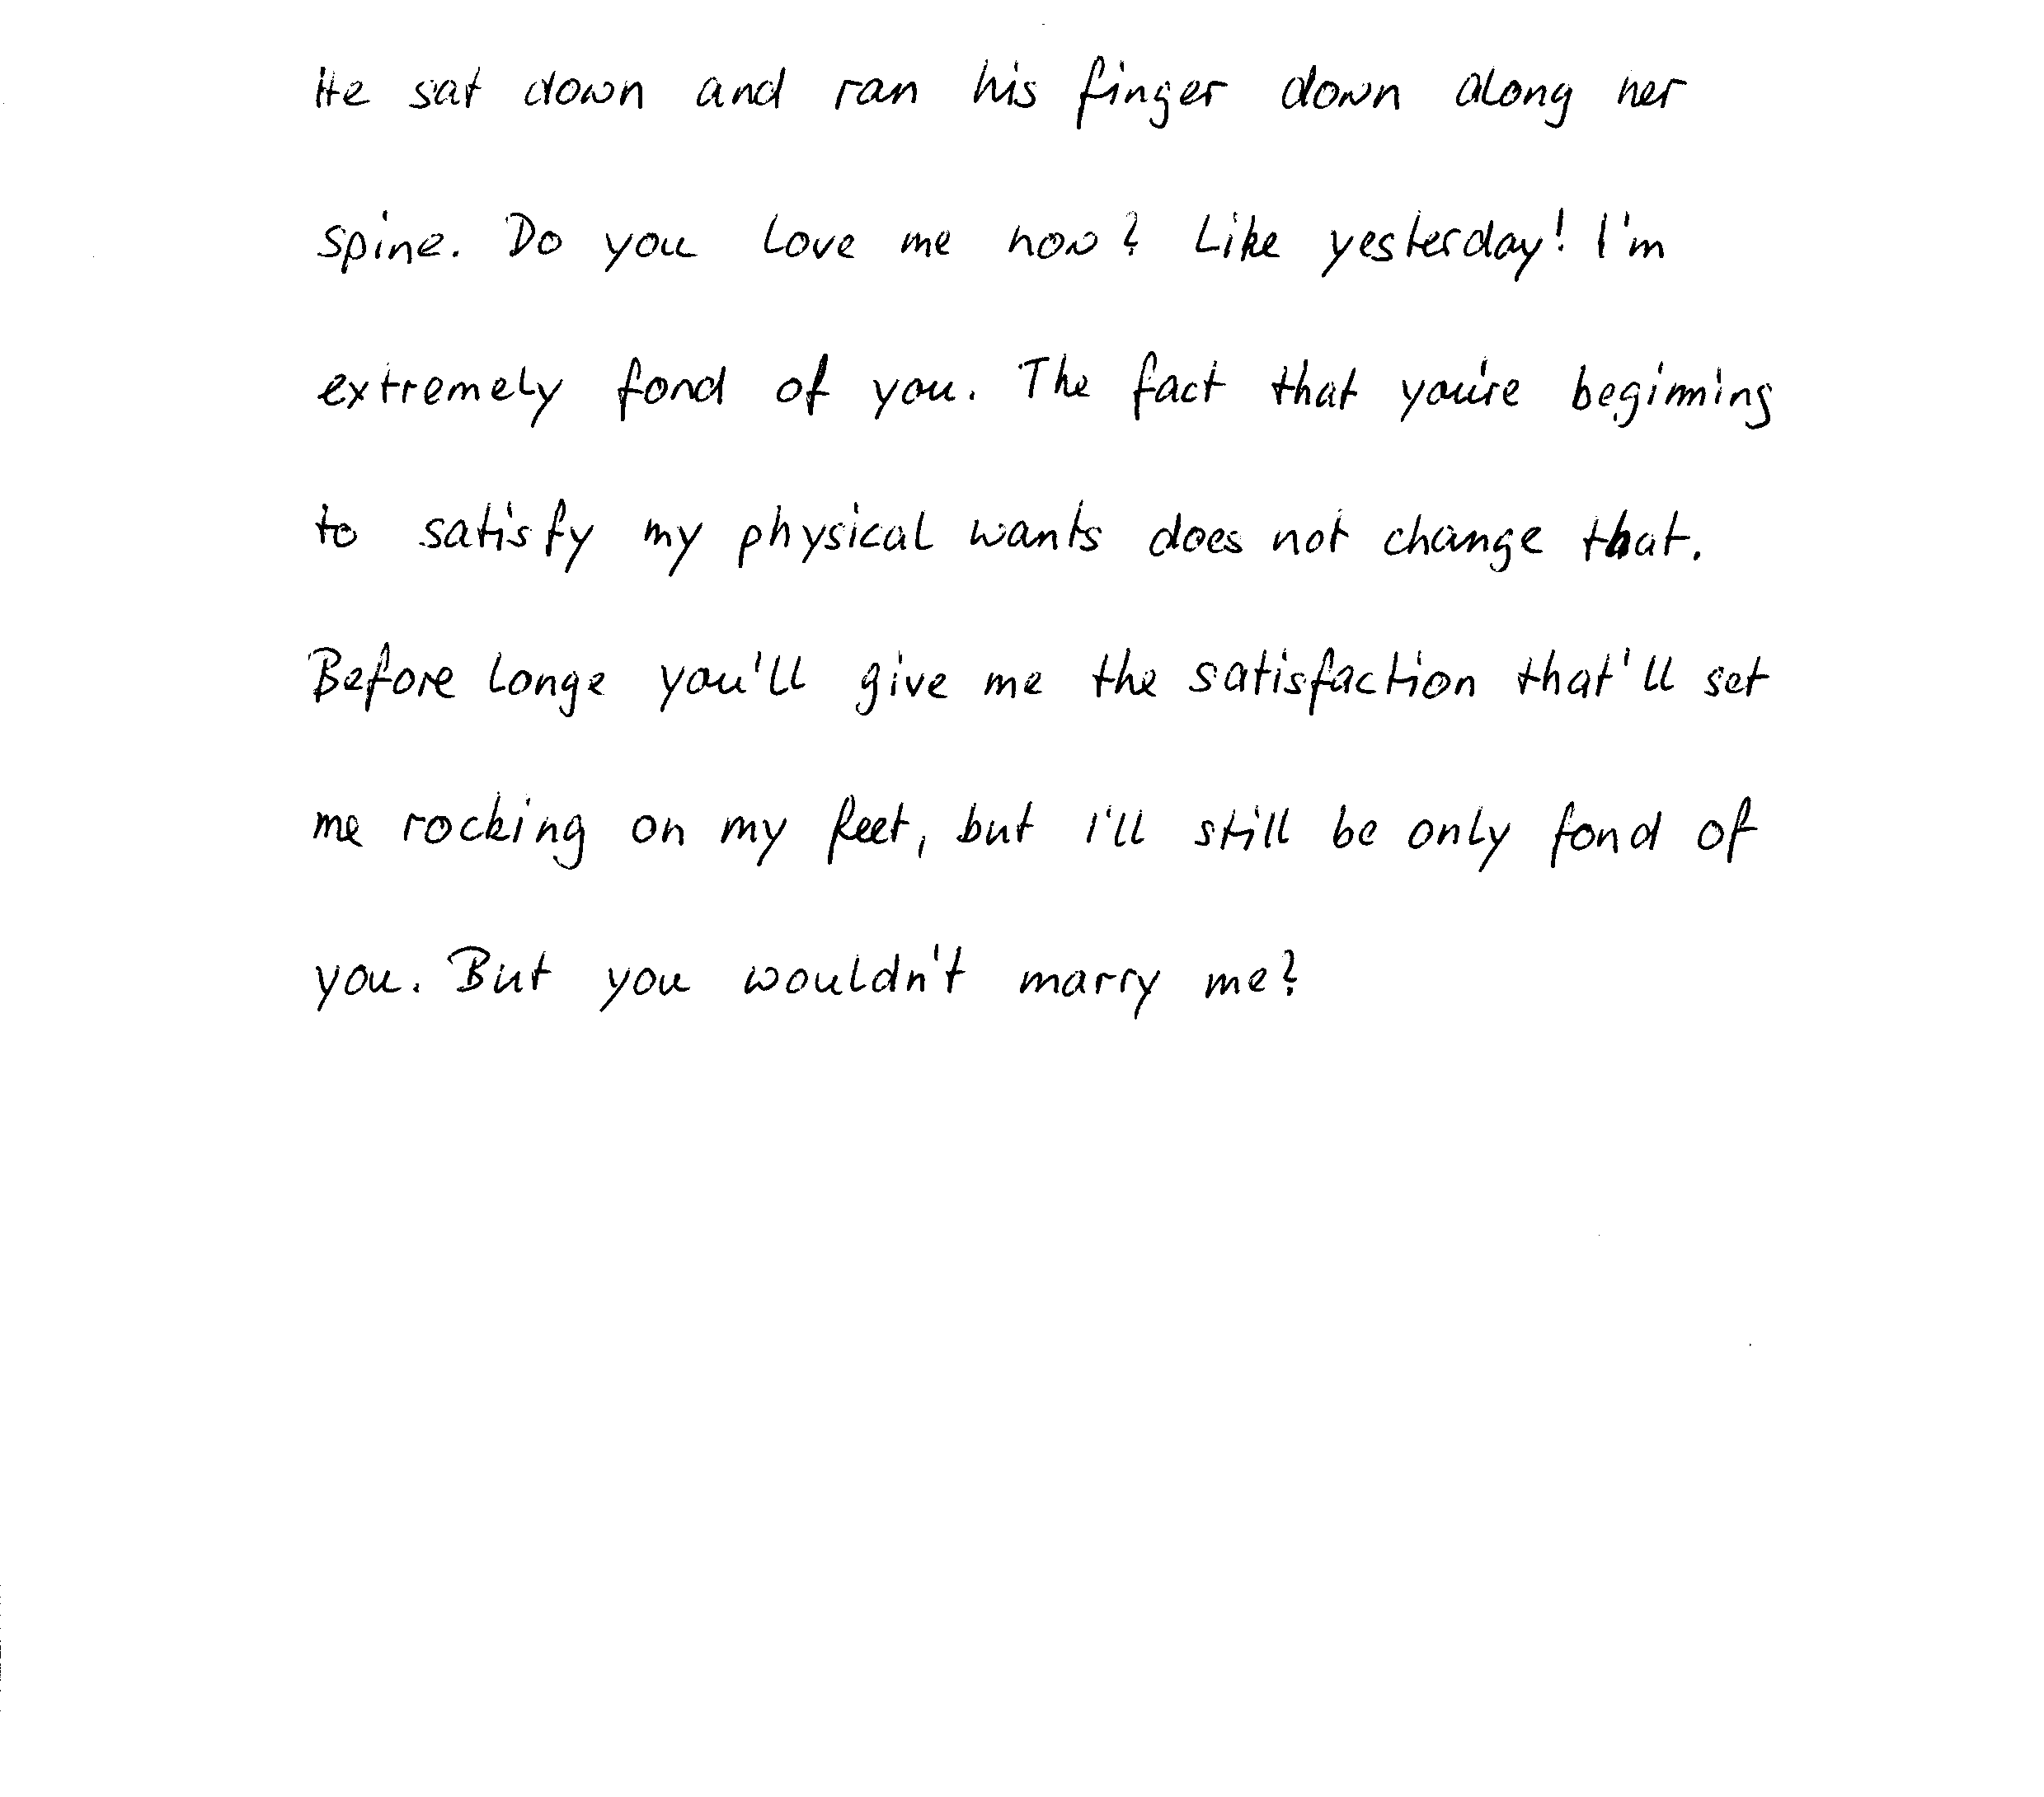 He sat down and ran his finger down along her
spine. Do you love me now? Like yesterday! I'm
extremely fond of you. The fact that you're beginning
to satisfy my physical wants does not change that.
Before longe you'll give me the satisfaction that'll set
me rocking on my feet, but I'll still be only fond of
you. But you wouldn't marry me?